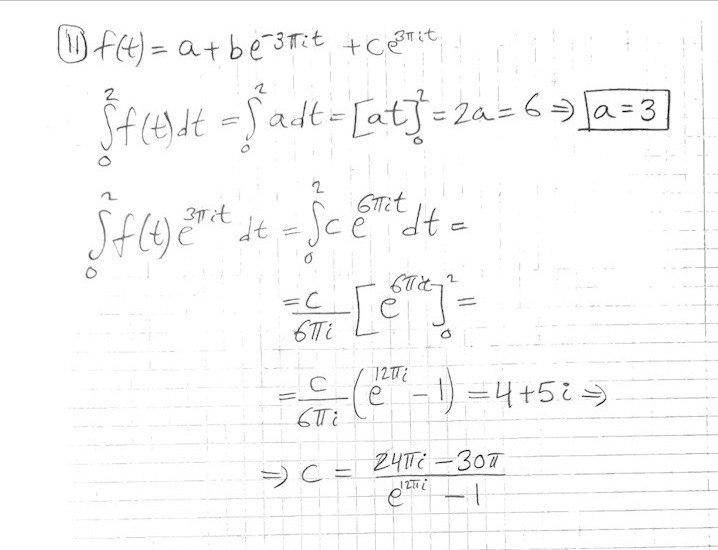 (11) f(t) = a + be^{-3πit} + ce^{3πit}
∫_0^2 f(t)dt = ∫_0^2 a dt = [at]_0^2 = 2a = 6 ⇒ a = 3
∫_0^2 f(t)e^{3πit} dt = ∫_0^2 c e^{6πit} dt =
= c/(6πi) [e^{6πit}]_0^2 =
= c/(6πi) (e^{12πi} - 1) = 4 + 5i ⇒
⇒ c = (24πi - 30π)/(e^{12πi} - 1)